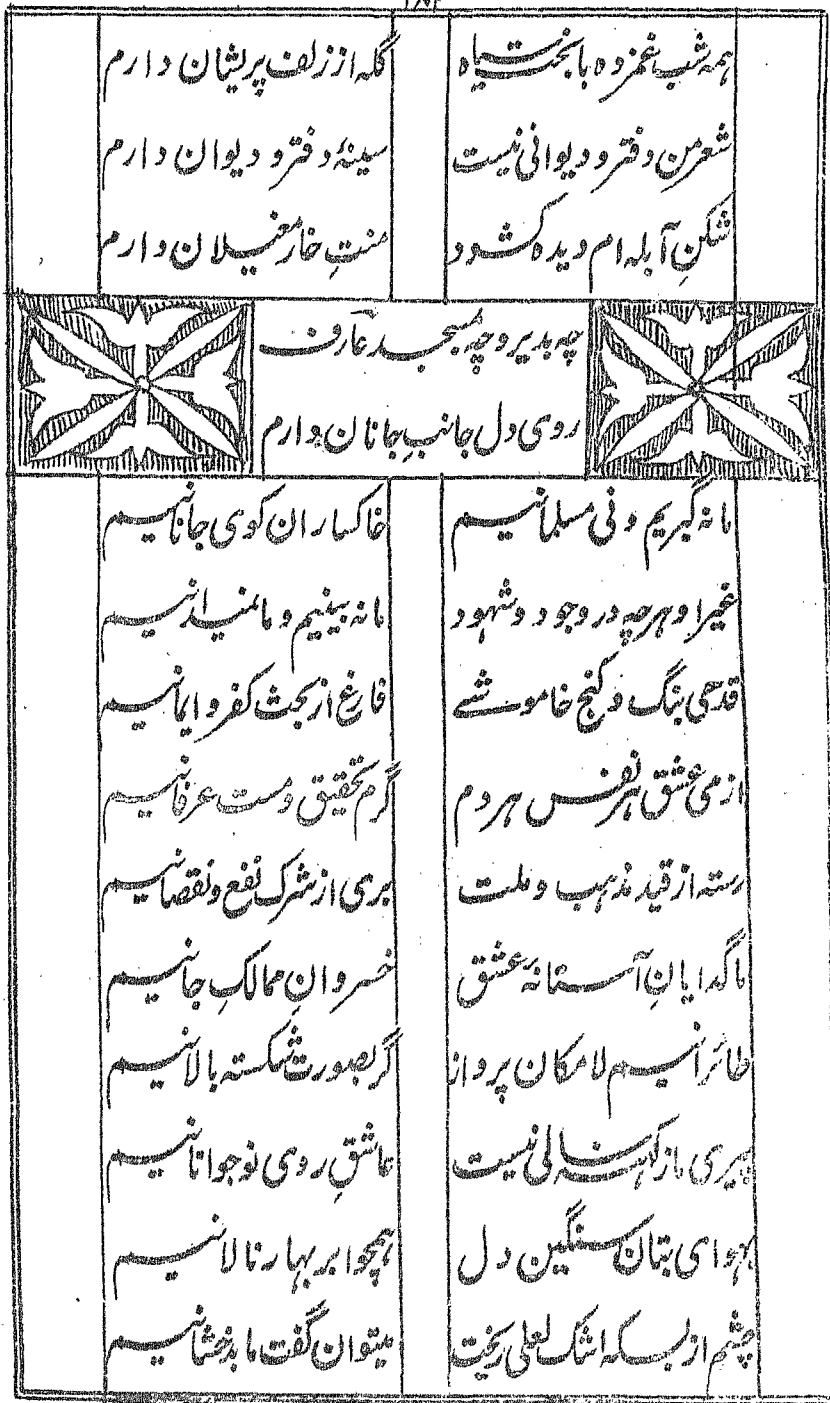 همه شب غمزده با بخت سیاه گله از زلف پریشان دارم
شعر من دفتر و دیوانی نیست سینهٔ دفتر و دیوان دارم
شکنِ آبله ام دیده کشود منتِ خار مغیلان دارم
چه بدیر و چه بمسجد عارف
روی دل جانبِ جانان دارم
ما نه گبریم و نی مسلمانیم خاکساران کوی جانانیم
غیر او هرچه در وجود و شهود ما نه بینیم و ما نمیدانیم
قدحی بنگ و کنج خاموشے فارغ از بحث کفر و ایمانیم
از می عشق هر نفس هر دم گرم تحقیق و مست عرفانیم
رسته از قید مذهب و ملت بری از شرک نفع و نقصانیم
ما گدایانِ آستانهٔ عشق خسروانِ ممالکِ جانیم
طائرانیم لامکان پرواز گر بصورت شکسته بالانیم
پیری ما ز کهنه سالی نیست عاشقِ روی نوجوانانیم
بهوای بتان سنگین دل همچو ابر بهار نالانیم
چشم از بسکه اشک لعلی ریخت میتوان گفت ما بدخشانیم